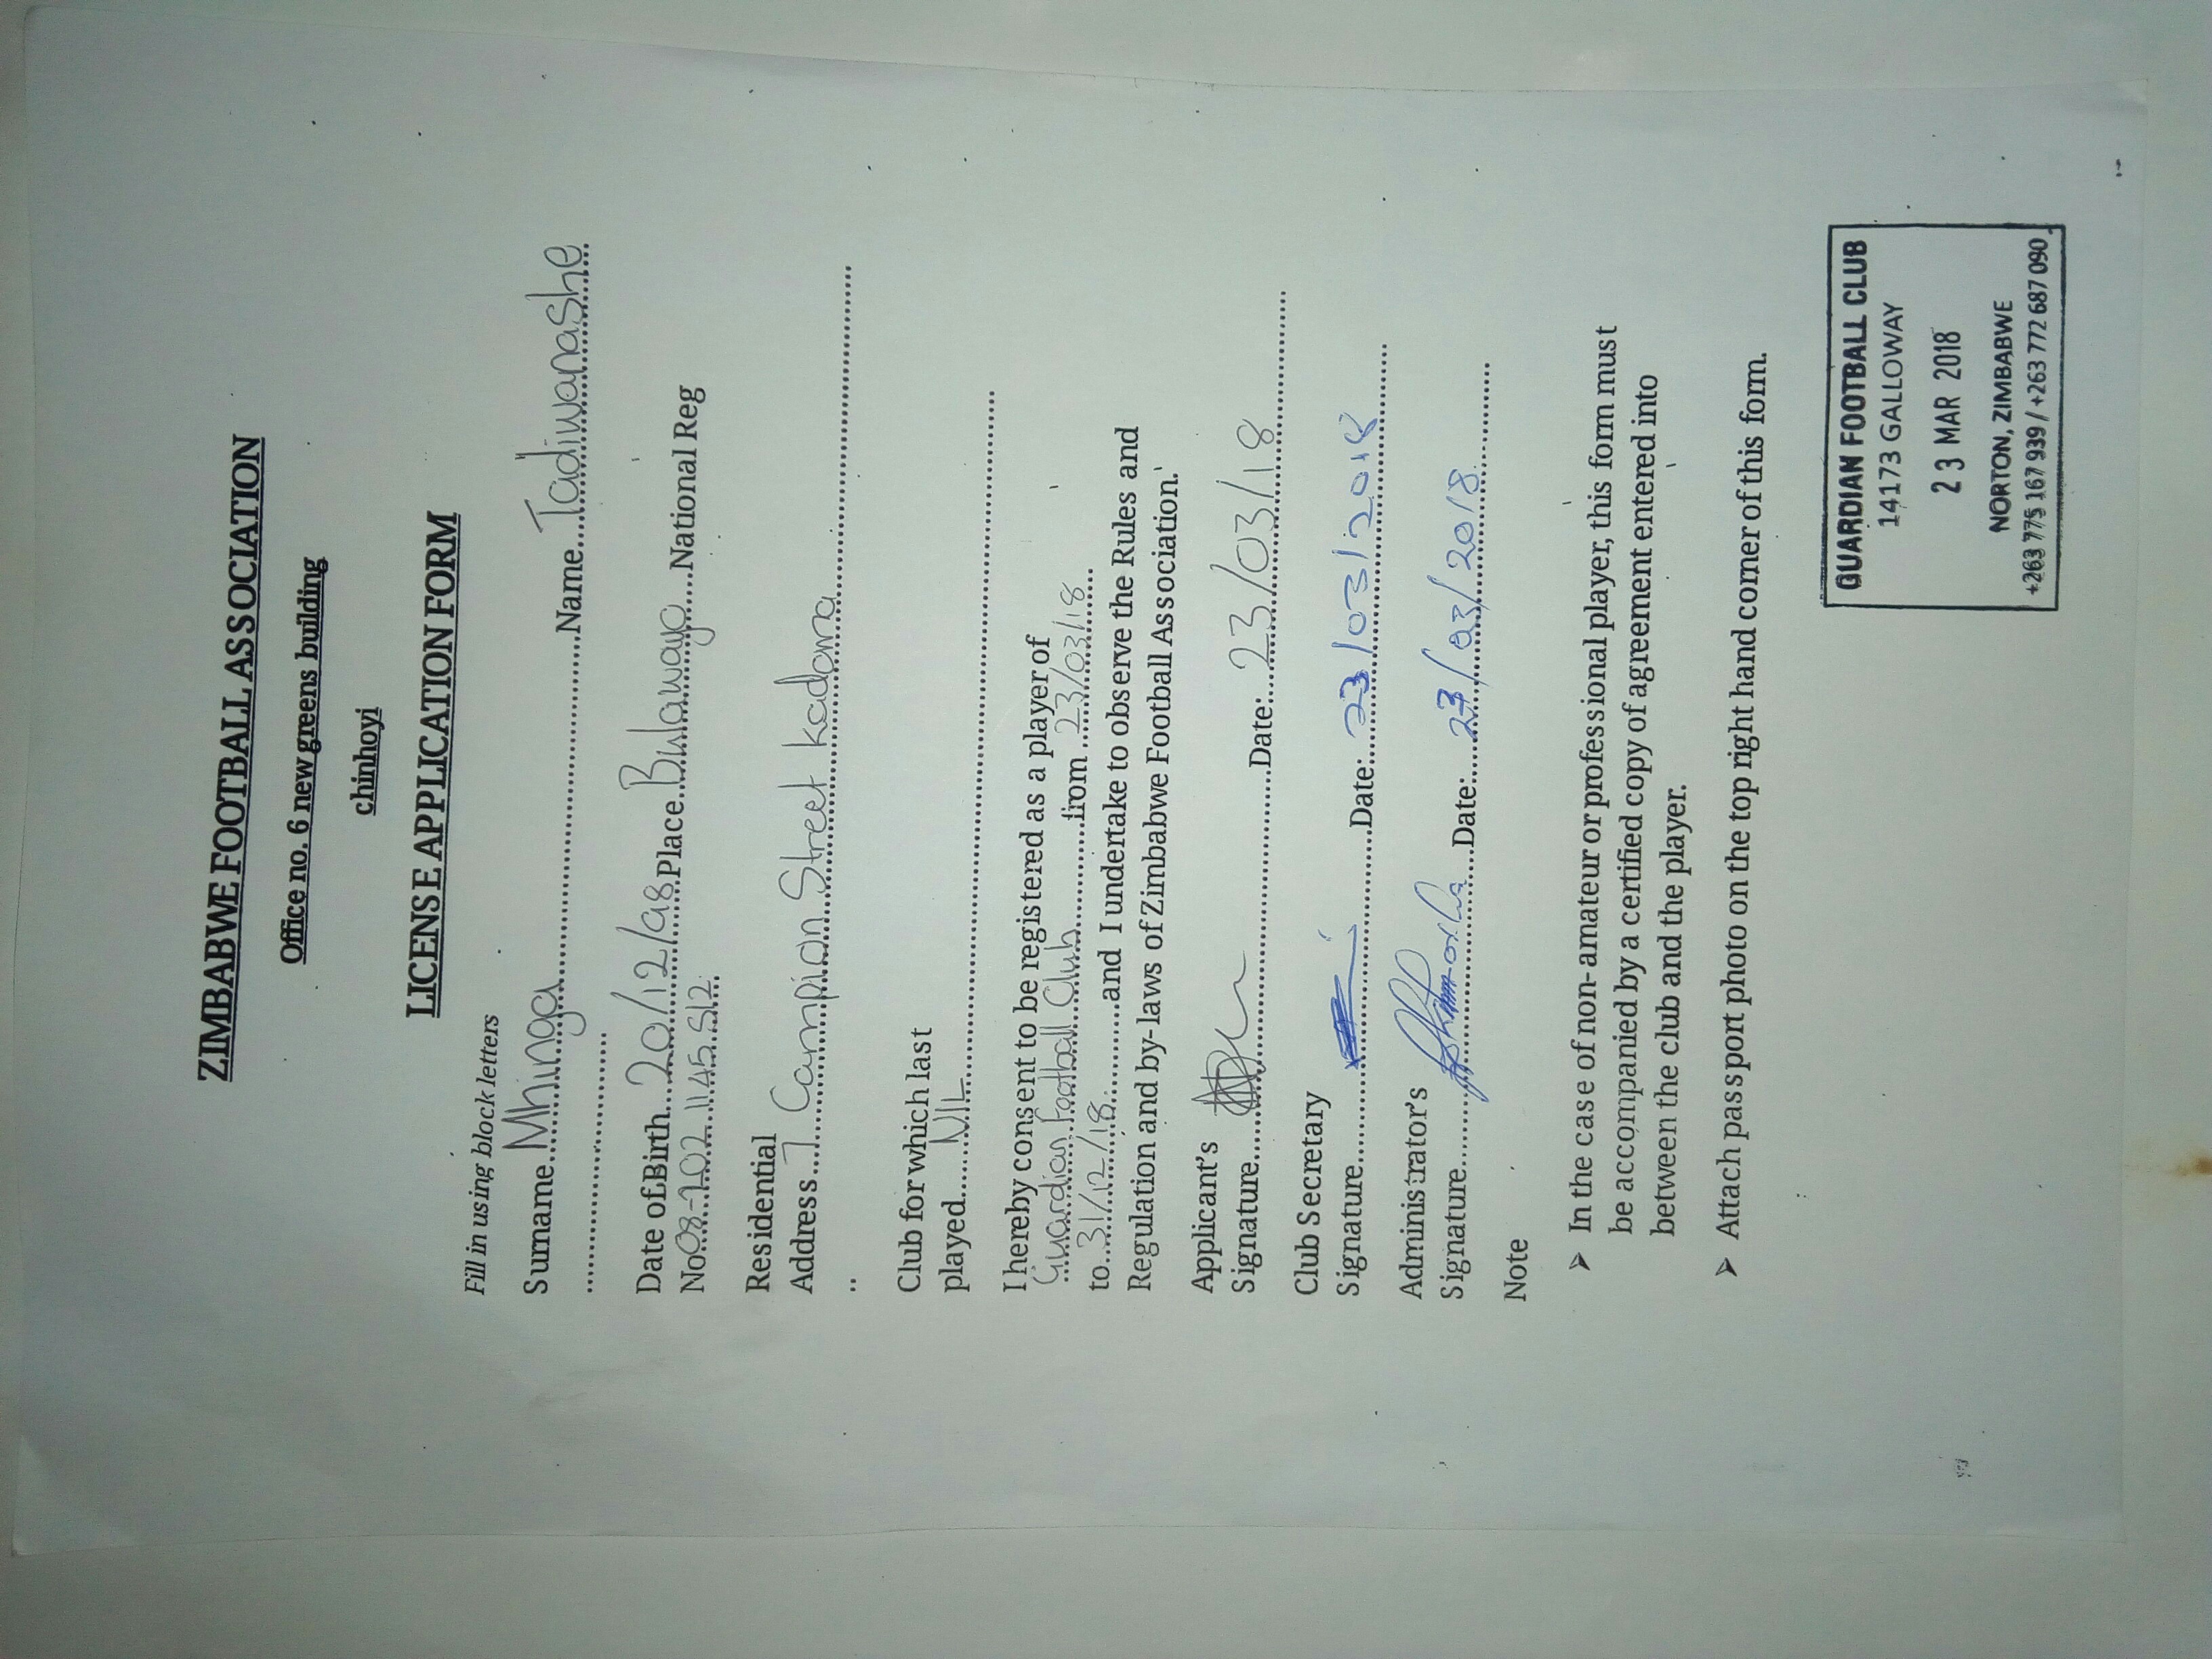 ZIMBABWE FOOTBALL ASSOCIATION
Office no. 6 new greens building
chinhoyi
LICENSE APPLICATION FORM
Fill in using block letters
Surname....Mhinga....................Name....Tadiwanashe
..........................
Date of Birth....20/12/98 Place Bulawayo....National Reg
No 08-202 1145 S12
Residential
Address....7 Campion Street kadoma....................
..
Club for which last
played......NIL....................
I hereby consent to be registered as a player of
Guardian Football Club..........from ..23/03/18
to..31/12/18..........and I undertake to observe the Rules and
Regulation and by-laws of Zimbabwe Football Association.
Applicant's
Signature....................Date:..23/03/18..........
Club Secretary
Signature....................Date:..23/03/2018..........
Administrator's
Signature....................Date:..23/03/2018..........
Note
➤ In the case of non-amateur or professional player, this form must
be accompanied by a certified copy of agreement entered into
between the club and the player.
➤ Attach passport photo on the top right hand corner of this form.
GUARDIAN FOOTBALL CLUB
14173 GALLOWAY
23 MAR 2018
NORTON, ZIMBABWE
+263 775 167 939 / +263 772 687 090